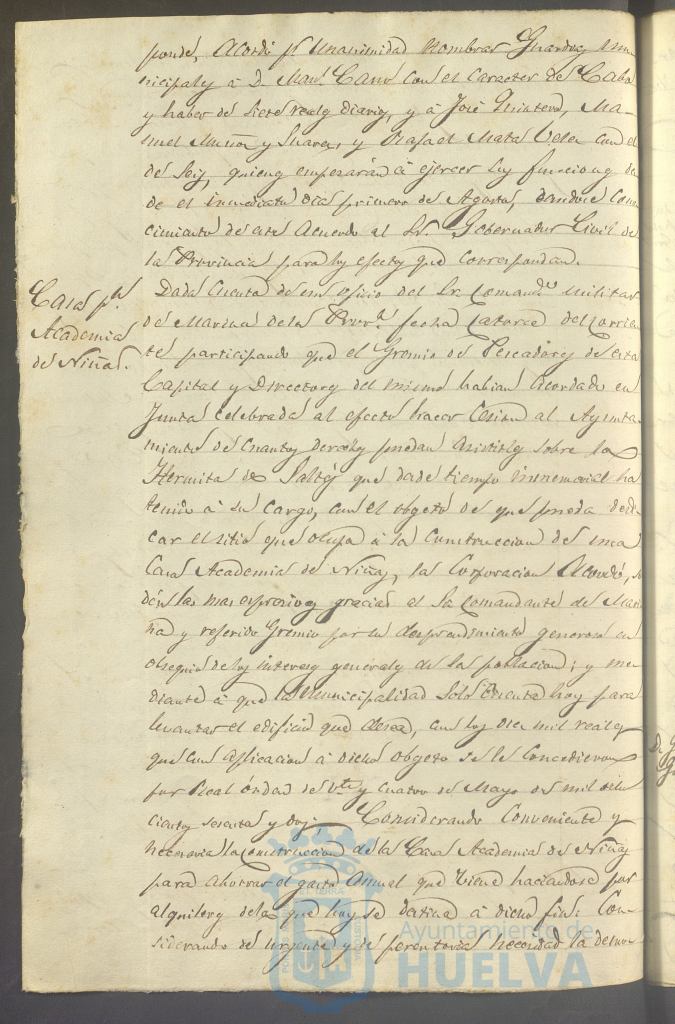 ponde, Acordó pr. Unanimidad nombrar Guardas mu-
nicipales á D. Manl. Cano con el Caracter de Cabo
y haber de siete reales diarios, y á José Quintero, Ma-
nuel Muñoz y Suarez, y Rafael Mata Vélez con el
de Seis, quienes empezarán á ejercer sus funciones des
de el inmediato dia primero de Agosto, dandose Cono
cimiento de este Acuerdo al Sr. Gobernador Civil de
la Provincia para los efectos que correspondan.
Casa pa.
Academia
de Niñas.
Dada Cuenta de un oficio del Sr. Comande. Militar
de Marina de la Prova. fecha Catorce del corrien
te participando que el Gremio de Pescadores de esta
Capital y Directores del mismo habian acordado en
Junta celebrada al efecto hacer Cesion al Ayunta-
miento de cuantos derechos puedan asistirles sobre la
Hermita de Saltés que desde tiempo inmemorial ha
tenido á su Cargo, con el obgeto de que pueda dedi
car el sitio que ocupa á la Construccion de una
Casa Academia de Niñas, la Corporacion Acordó, se
dén las mas espresivas gracias al Sr. Comandante de Mari
na y referido Gremio por su desprendimiento generoso en
obsequio de los intereses generales de la poblacion; y me
diante á que la Municipalidad Solo Cuenta hoy para
levantar el edificio que desea, con los diez mil reales
que con aplicacion á dicho obgeto se le Concedieron
por Real órden de Vte. y cuatro de Mayo de mil ocho
cientos sesenta y dos; Considerando Conveniente y
necesaria la Construccion de la Casa Academia de Niñas
para ahorrar el gasto Anual que viene haciendose por
alquileres de la que hoy se destina á dicho fin: Con-
siderando de urgente y de perentoria necesidad la
Ayuntamiento de
HUELVA